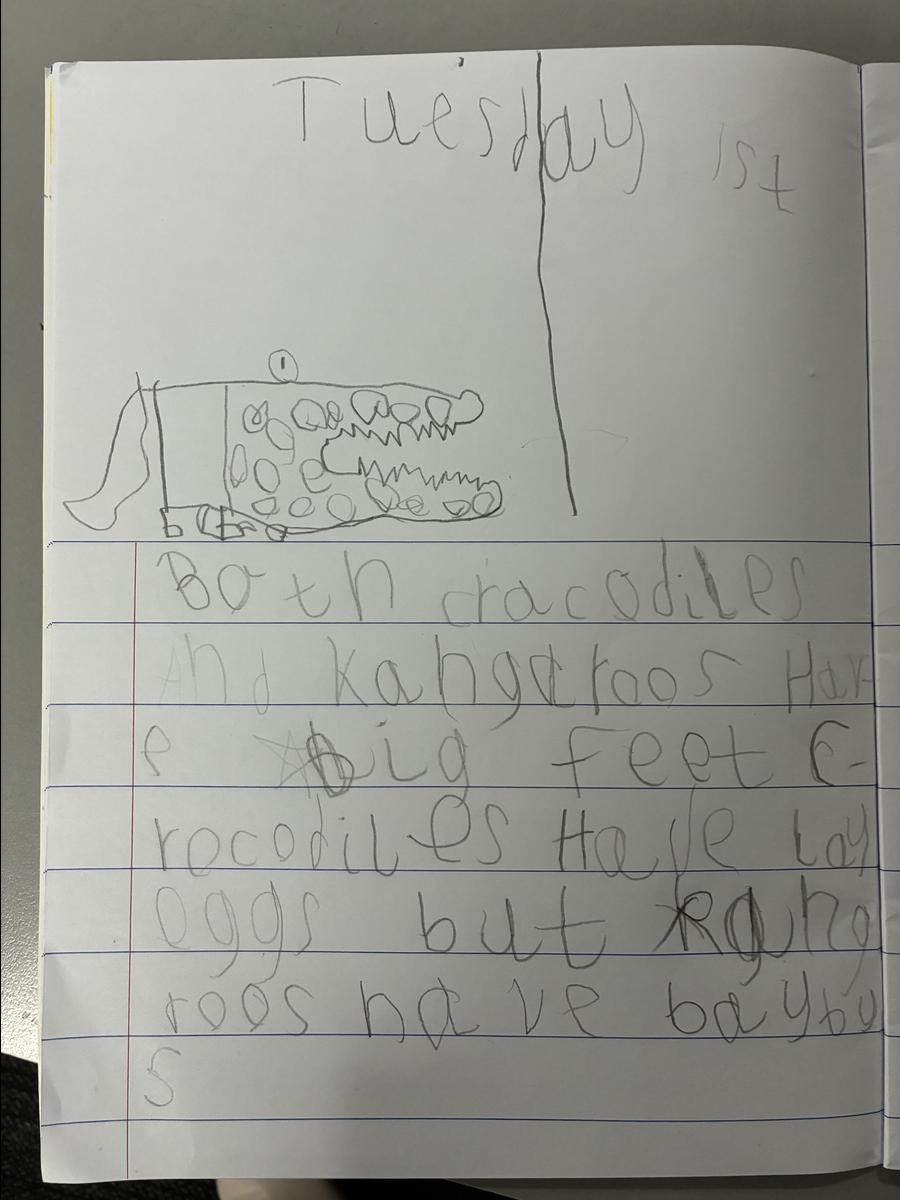 Tuesday 1st
Both cracodiles
And kangaroos Hav
e big feet C-
rocodiles Have lay
eggs but kang
roos have bayby
s